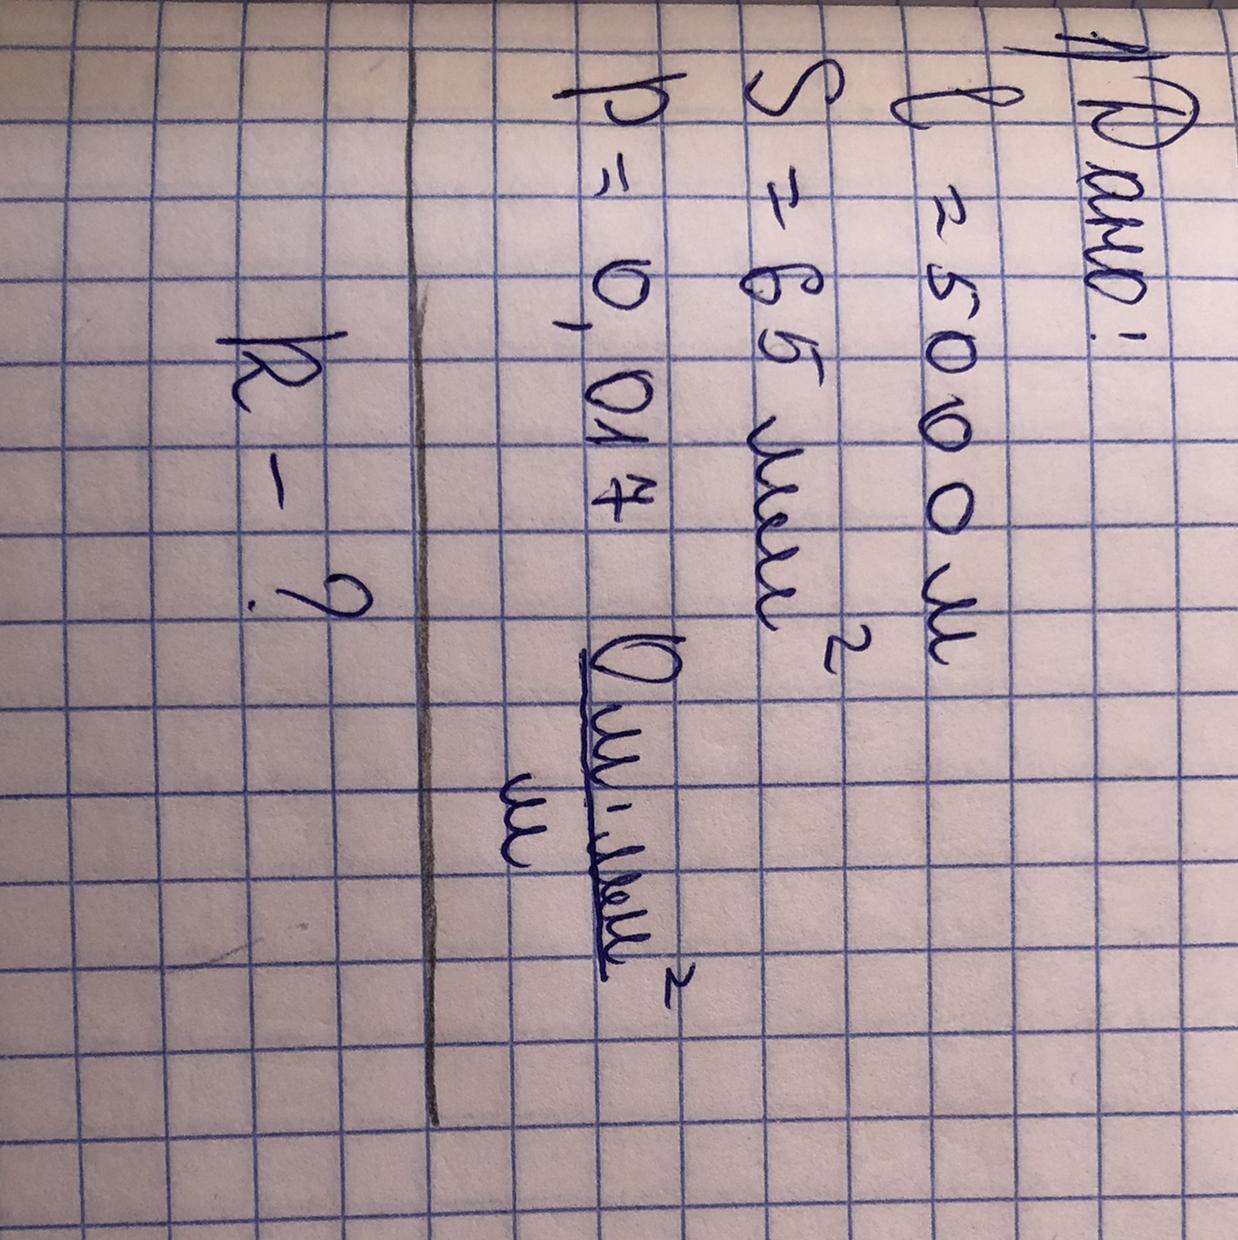 1) Дано:
l = 5000 м
S = 65 мм²
p = 0,017 Ом·мм²
м
R - ?